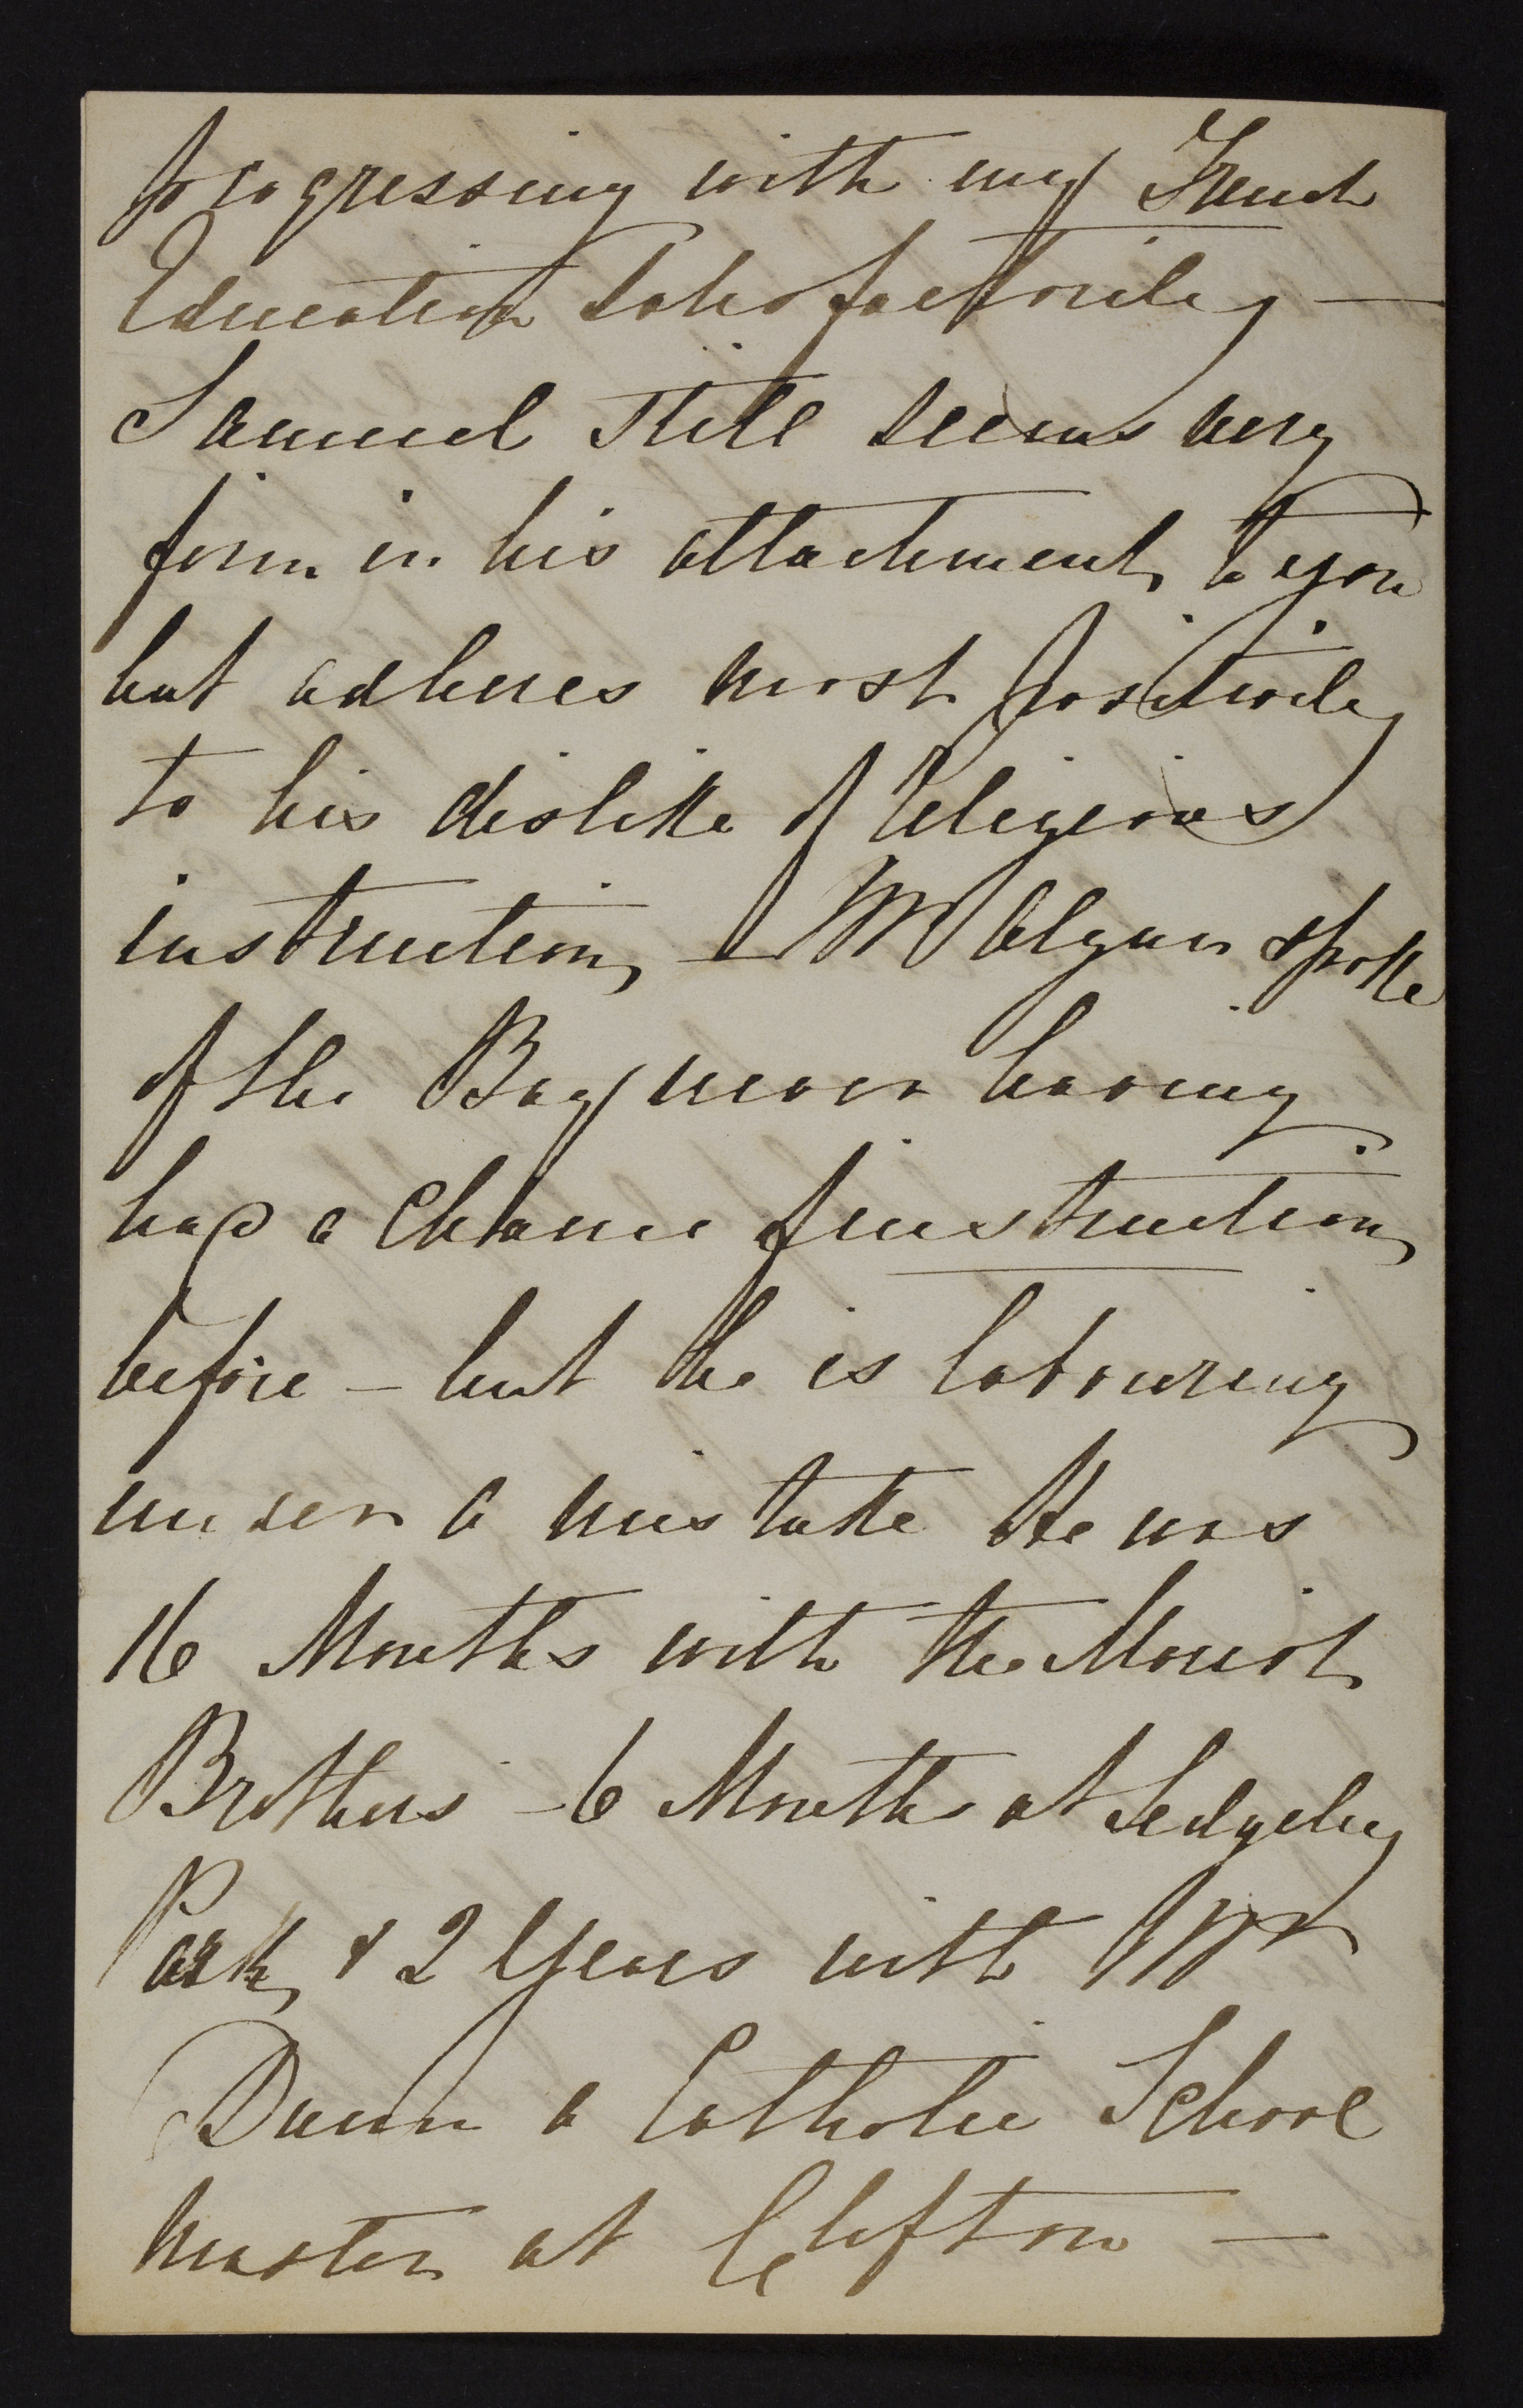 progressing with my French
Education satisfactorily —
Samuel still seems very
firm in his attachment to you
but adheres most positively
to his dislike of religious
instruction, — Mr spoke
of the Boy never having
had a Chance of instruction
before — but he is labouring
under a mistake He was
16 Months with the Marist
Brothers — 6 Months at Sedgeley
Park, & 2 Years with Mr
Dunn a Catholic School
master at Clifton —